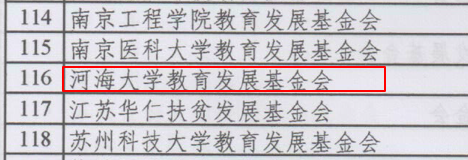 114 南京工程学院教育发展基金会
115 南京医科大学教育发展基金会
116 河海大学教育发展基金会
117 江苏华仁扶贫发展基金会
118 苏州科技大学教育发展基金会